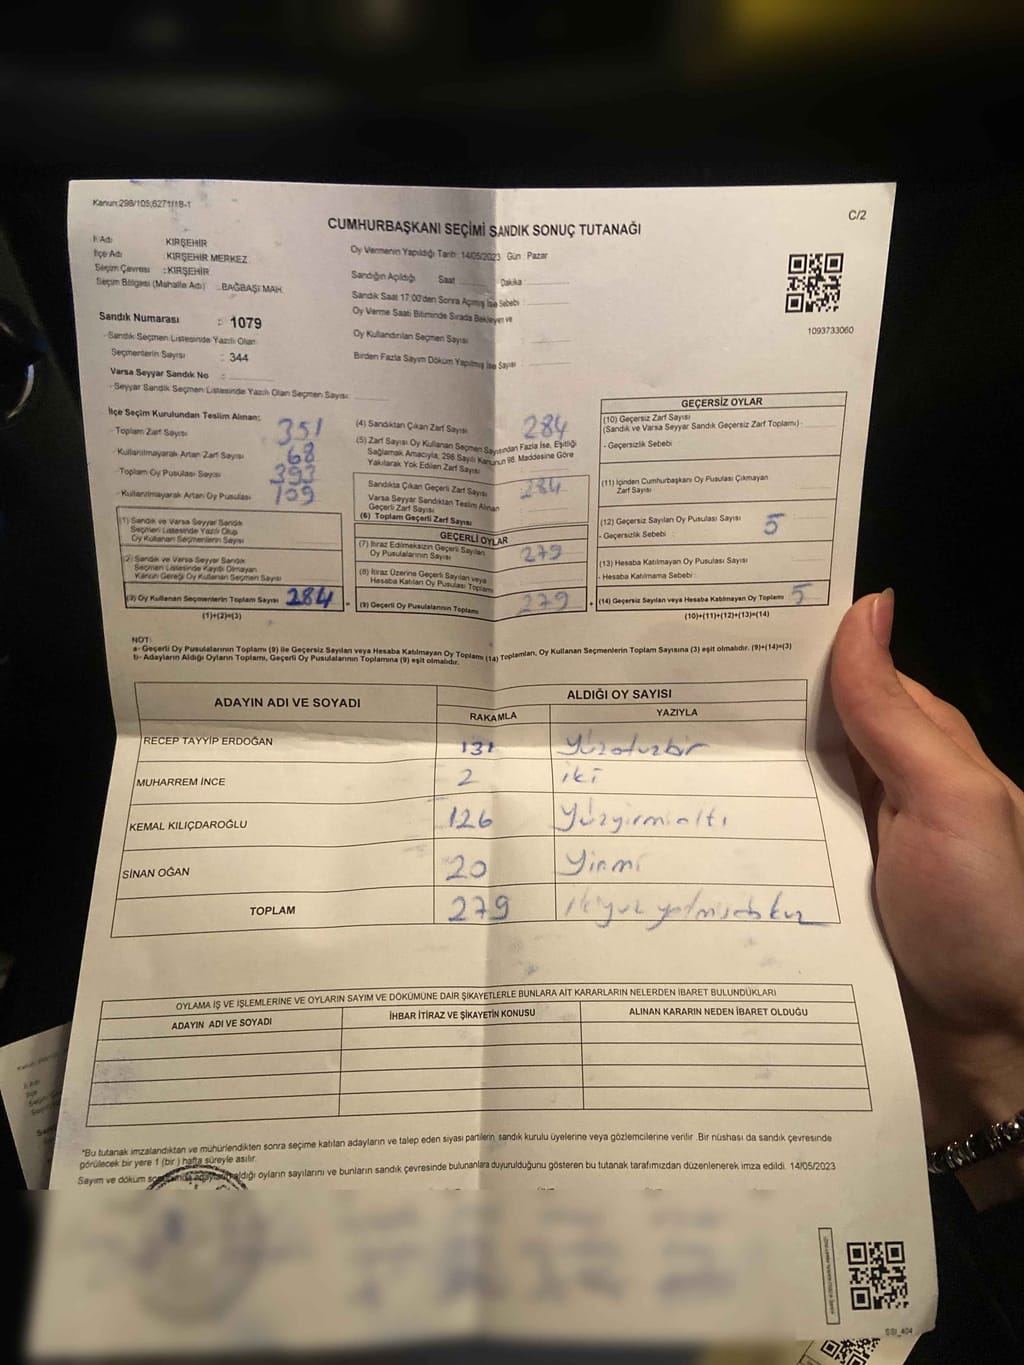 Kanun:298/105;6271/18-1
C/2
CUMHURBAŞKANI SEÇİMİ SANDIK SONUÇ TUTANAĞI
İl Adı KIRŞEHİR
İlçe Adı KIRŞEHİR MERKEZ
Seçim Çevresi : KIRŞEHİR
Seçim Bölgesi (Mahalle Adı) : BAĞBAŞI MAH.
Sandık Numarası : 1079
- Sandık Seçmen Listesinde Yazılı Olan
Seçmenlerin Sayısı : 344
Varsa Seyyar Sandık No :
- Seyyar Sandık Seçmen Listesinde Yazılı Olan Seçmen Sayısı:
Oy Vermenin Yapıldığı Tarih: 14/05/2023 Gün Pazar
Sandığın Açıldığı Saat Dakika :
Sandık Saat 17:00'den Sonra Açılmış İse Sebebi :
Oy Verme Saati Bitiminde Sırada Bekleyen ve
Oy Kullandırılan Seçmen Sayısı
Birden Fazla Sayım Döküm Yapılmış İse Sayısı :
1093733060
İlçe Seçim Kurulundan Teslim Alınan:
- Toplam Zarf Sayısı 351
- Kullanılmayarak Artan Zarf Sayısı 68
- Toplam Oy Pusulası Sayısı 393
- Kullanılmayarak Artan Oy Pusulası 109
(1) Sandık ve Varsa Seyyar Sandık
Seçmen Listesinde Yazılı Olup
Oy Kullanan Seçmenlerin Sayısı
(2) Sandık ve Varsa Seyyar Sandık
Seçmen Listesinde Kayıtlı Olmayan
Kanun Gereği Oy Kullanan Seçmen Sayısı
(3) Oy Kullanan Seçmenlerin Toplam Sayısı 284
(1)+(2)=(3)
(4) Sandıktan Çıkan Zarf Sayısı 284
(5) Zarf Sayısı Oy Kullanan Seçmen Sayısından Fazla İse, Eşitliği
Sağlamak Amacıyla, 298 Sayılı Kanunun 98. Maddesine Göre
Yakılarak Yok Edilen Zarf Sayısı
Sandıkta Çıkan Geçerli Zarf Sayısı 284
Varsa Seyyar Sandıktan Teslim Alınan
Geçerli Zarf Sayısı
(6) Toplam Geçerli Zarf Sayısı
GEÇERLİ OYLAR
(7) İtiraz Edilmeksizin Geçerli Sayılan
Oy Pusulalarının Sayısı 279
(8) İtiraz Üzerine Geçerli Sayılan veya
Hesaba Katılan Oy Pusulası Toplamı
= (9) Geçerli Oy Pusulalarının Toplamı 279
GEÇERSİZ OYLAR
(10) Geçersiz Zarf Sayısı
(Sandık ve Varsa Seyyar Sandık Geçersiz Zarf Toplamı)
- Geçersizlik Sebebi :
(11) İçinden Cumhurbaşkanı Oy Pusulası Çıkmayan
Zarf Sayısı
(12) Geçersiz Sayılan Oy Pusulası Sayısı 5
- Geçersizlik Sebebi :
(13) Hesaba Katılmayan Oy Pusulası Sayısı
- Hesaba Katılmama Sebebi :
+ (14) Geçersiz Sayılan veya Hesaba Katılmayan Oy Toplamı 5
(10)+(11)+(12)+(13)=(14)
NOT:
a- Geçerli Oy Pusulalarının Toplamı (9) ile Geçersiz Sayılan veya Hesaba Katılmayan Oy Toplamı (14) Toplamları, Oy Kullanan Seçmenlerin Toplam Sayısına (3) eşit olmalıdır. (9)+(14)=(3)
b- Adayların Aldığı Oyların Toplamı, Geçerli Oy Pusulalarının Toplamına (9) eşit olmalıdır.
ADAYIN ADI VE SOYADI ALDIĞI OY SAYISI
RAKAMLA YAZIYLA
RECEP TAYYİP ERDOĞAN 131 Yüzotuzbir
MUHARREM İNCE 2 iki
KEMAL KILIÇDAROĞLU 126 Yüzyirmialtı
SİNAN OĞAN 20 Yirmi
TOPLAM 279
OYLAMA İŞ VE İŞLEMLERİNE VE OYLARIN SAYIM VE DÖKÜMÜNE DAİR ŞİKAYETLERLE BUNLARA AİT KARARLARIN NELERDEN İBARET BULUNDUKLARI
ADAYIN ADI VE SOYADI İHBAR İTİRAZ VE ŞİKAYETİN KONUSU ALINAN KARARIN NEDEN İBARET OLDUĞU
*Bu tutanak imzalandıktan ve mühürlendikten sonra seçime katılan adayların ve talep eden siyasi partilerin sandık kurulu üyelerine veya gözlemcilerine verilir .Bir nüshası da sandık çevresinde
görülecek bir yere 1 (bir ) hafta süreyle asılır.
Sayım ve döküm aldığı oyların sayılarını ve bunların sandık çevresinde bulunanlara duyurulduğunu gösteren bu tutanak tarafımızdan düzenlenerek imza edildi. 14/05/2023
SSI_404